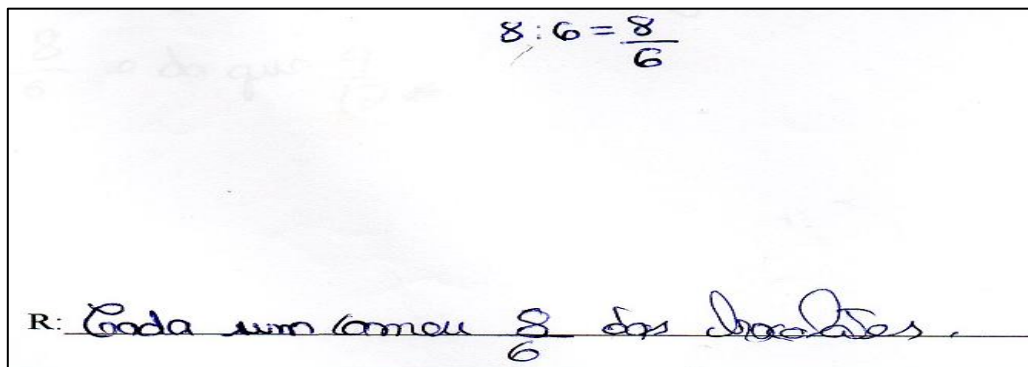 8 : 6 = 8/6
R: Cada um comeu 8/6 dos chocolates.